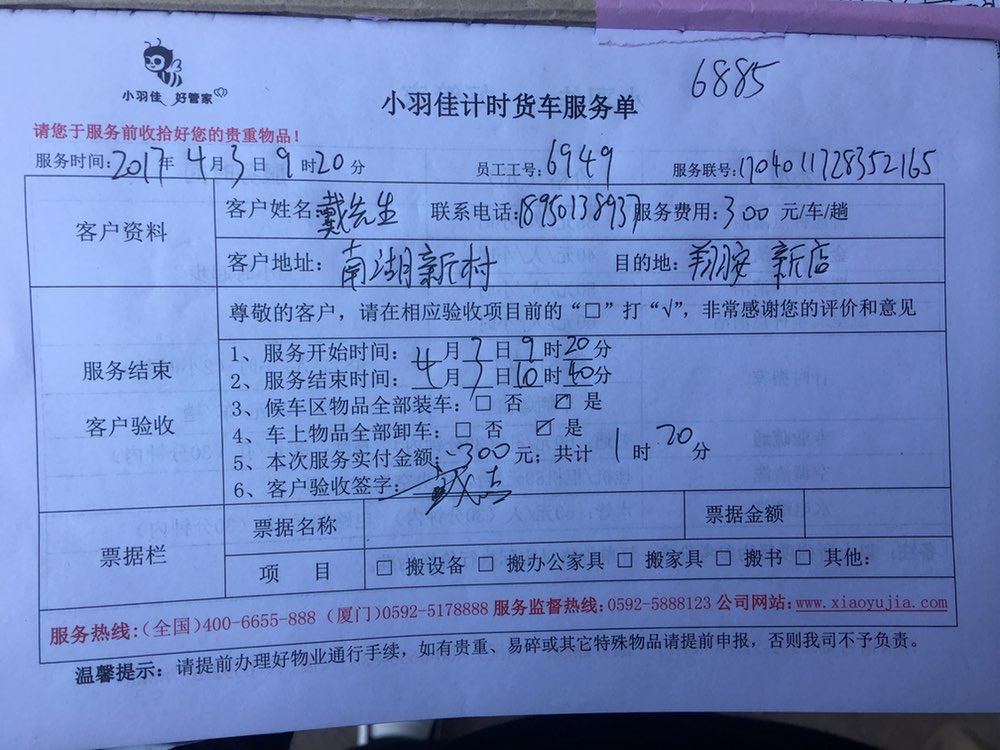 6885
小羽佳 好管家
小羽佳计时货车服务单
请您于服务前收拾好您的贵重物品！
服务时间：2017年4月3日9时20分 员工工号：6949 服务联号：1704011728352165
客户资料
客户姓名：戴先生 联系电话：18950138937 服务费用：300元/车/趟
客户地址：南湖新村 目的地：翔安 新店
尊敬的客户，请在相应验收项目前的“□”打“√”，非常感谢您的评价和意见
服务结束
客户验收
1、服务开始时间：4月3日9时20分
2、服务结束时间：4月3日10时40分
3、候车区物品全部装车：□ 否 ☑ 是
4、车上物品全部卸车：□ 否 ☑ 是
5、本次服务实付金额：300元；共计1时20分
6、客户验收签字：
票据栏
票据名称 票据金额
项 目 □ 搬设备 □ 搬办公家具 □ 搬家具 □ 搬书 □ 其他：
服务热线：（全国）400-6655-888（厦门）0592-5178888 服务监督热线：0592-5888123 公司网站：www.xiaoyujia.com
温馨提示：请提前办理好物业通行手续，如有贵重、易碎或其它特殊物品请提前申报，否则我司不予负责。